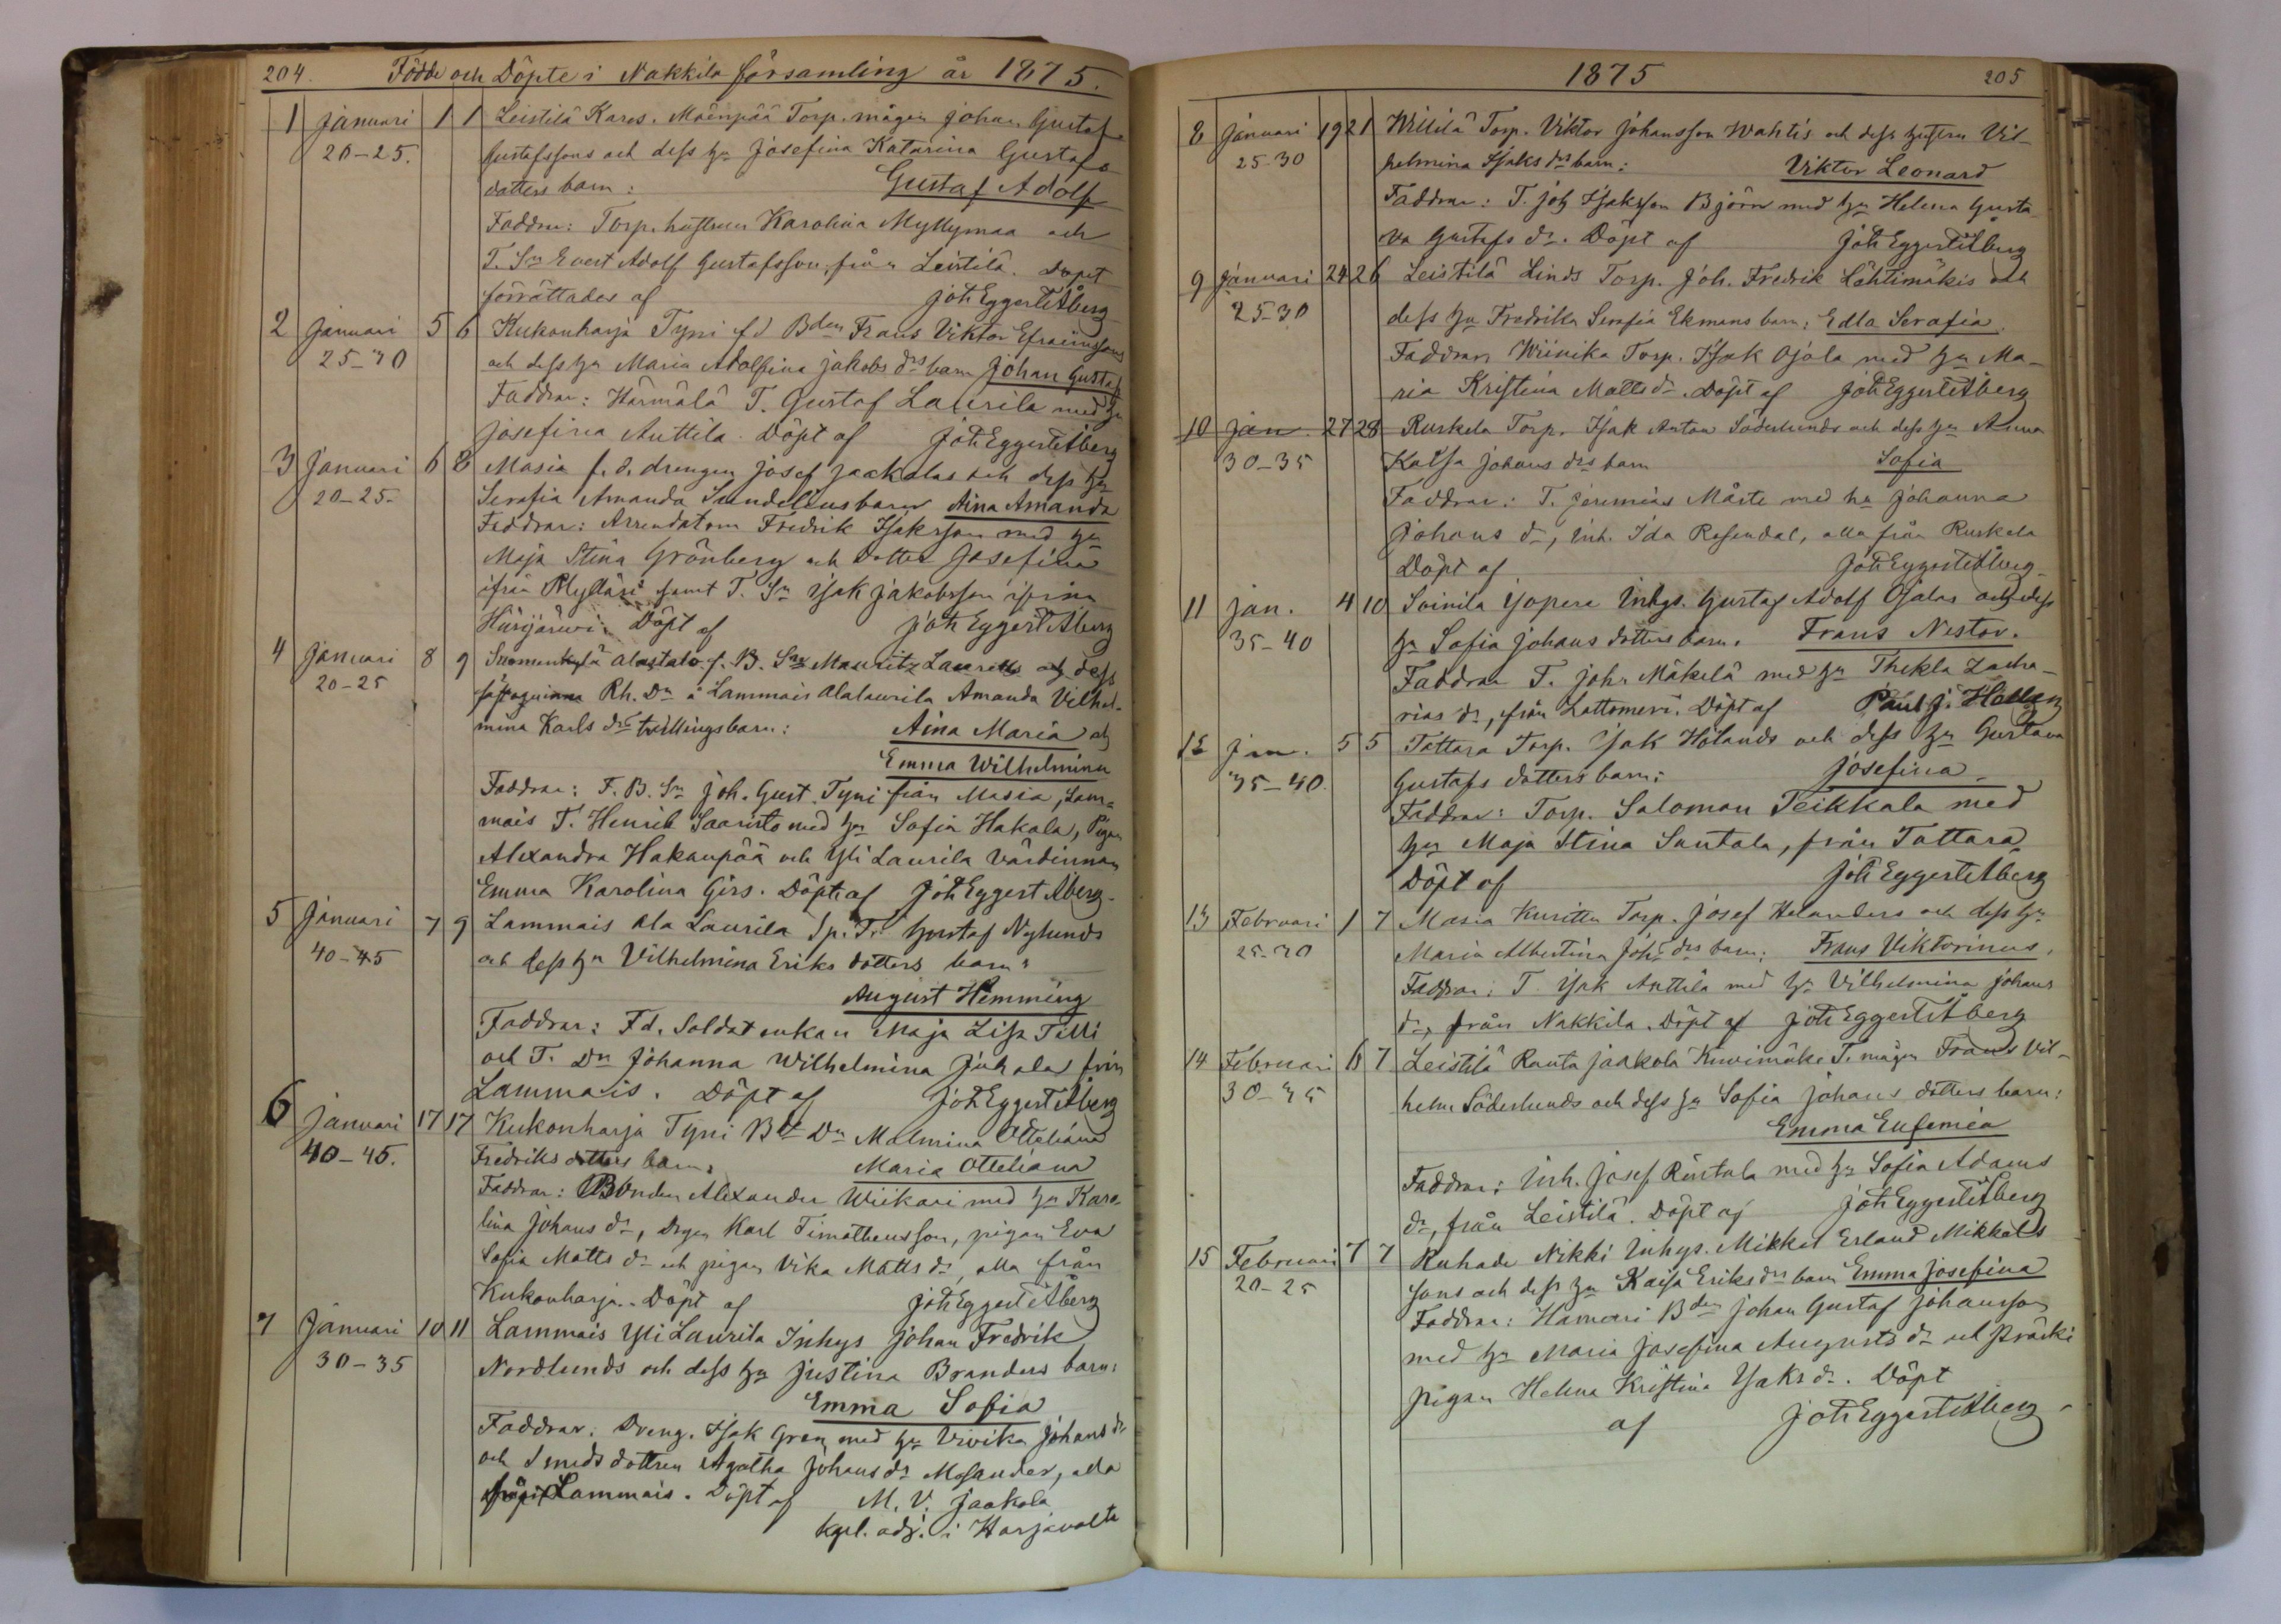 204. Födde och Döpte i Nakkila församling år 1875.
1 Januari 1 1 Leistilä Kares. Mäenpää Torp. mågen Johan Gustaf
20-25. Gustafssons och dess hu Josefina Katarina Gustafs
dotters barn: Gustaf Adolf
Faddrar: Torp. hustrun Karolina Myllymaa och
T. Sn Evert Adolf Gustafsson från Leistilä. Döpt
förrättades af Joh Eggert Åberg
2 Januari 5 6 Kukonharja Tyni f d Bden Frans Viktor Efraimssons
25-30 och dess hu Maria Adolfina Jakobs drs barn Johan Gustaf
Faddrar: Härmälä T. Gustaf Laurila med hu
Josefina Anttila. Döpt af Joh Eggert Åberg
3 Januari 6 8 Masia f. d. drengen Josef Jaakolas och dess hu
20-25. Serafia Amanda Sundelius barn Aina Amanda
Faddrar: Arrendatorn Fredrik Isaksson med hu
Maja Stina Grönberg och dotter Josefina
ifrån samt T. Sn Isak Jakobsson ifrån
Hiirijärvi. Döpt af Joh Eggert Åberg
4 Januari 8 9 Suomenkylä Alastalo f. B. Sns Mauritz Laurells och dess
20-25 Rh. Dn å Lammais Alalaurila Amanda Vilhel-
mina Karls drs tvillingsbarn: Aina Maria och
Emma Wilhelmina
Faddrar: F. B. Sn Joh. Gust. Tyni från Masia, Lam-
mais T. Henrik Saaristo med hu Sofia Hakala, Pigan
Alexandra Hakanpää och Yli Laurila Värdinnan
Emma Karolina Girs. Döpt af Joh Eggert Åberg.
5 Januari 7 9 Lammais Ala Laurila Sp. T. Gustaf Nylunds
40-45 och dess hu Vilhelmina Eriks dotters barn:
August Hemming
Faddrar: Fd. Soldat enkan Maja Lisa Tilli
och T. Dn Johanna Wilhelmina Juhola från
Lammais. Döpt af Joh Eggert Åberg
6 Januari 17 17 Kukonharja Tyni Bde Dn Malmina Otteliana
40-45. Fredriks dotters barn: Maria Otteliana
Faddrar: Bonden Alexander Wiikari med hu Karo-
lina Johans dr, Drgn Karl Timotheusson, pigan Eva
Sofia Matts dr och pigan Vika Matts dr, alla från
Kukonharja. Döpt af Joh Eggert Åberg
7 Januari 10 11 Lammais Yli Laurila Inhys Johan Fredrik
30-35 Nordlunds och dess hu Justina Branders barn:
Emma Sofia
Faddrar: Dreng. Isak Gren med hu Vivika Johans dr
och Smeds dottren Agatha Johans dr Mosander, alla
från Lammais. Döpt af M. V. Jaakola
kpl. adj. i Harjavalta
1875 205
8 Januari 19 21 Willilä Torp. Viktor Johansson Wahtis och dess hustru Vil-
25-30 helmina Isaks drs barn: Viktor Leonard
Faddrar: T. Joh Isaksson Björn med hu Helena Gusta-
va Gustafs dr. Döpt af Joh Eggert Åberg
9 Januari 24 26 Leistilä Linds Torp. Joh. Fredrik Lähtimäkis och
25-30 dess hu Fredrika Serafia Ekmans barn: Edla Serafia.
Faddrar: Wiinika Torp. Isak Ojala med hu Ma-
ria Kristina Matts dr. Döpt af Joh Eggert Åberg
10 Jan. 27 28 Ruskela Torp. Isak Anton Söderlunds och dess hu Anna
30-35 Kaisa Johans drs barn Sofia
Faddrar: T. Jeremias Määte med hu Johanna
Johans dr, Inh. Ida Rosendal, alla från Ruskela
Döpt af Joh Eggert Åberg
11 Jan. 4 10 Soinila Yopere Inhys. Gustaf Adolf Ojalas och dess
35-40 hu Sofia Johans dotters barn. Frans Nestor.
Faddrar T. Joh. Mäkelä med hu Thekla Zacha-
rias dr, från Lattomeri. Döpt af Paul J. Hellen
12 Jan. 5 5 Tattara Torp. Isak Hölands och dess hu Gustava
35-40. Gustafs dotters barn: Josefina
Faddrar: Torp. Salomon Teikkala med
hu Maja Stina Santala, från Tattara
Döpt af Joh Eggert Åberg
13 Februari 1 7 Masia Kuritta Torp. Josef Helanders och dess hu
25-30 Maria Albertina Joh: drs barn: Frans Viktorinus.
Faddrar: T. Isak Anttila med hu Vilhelmina Johans
dr, från Nakkila. Döpt af Joh Eggert Åberg
14 Februari 6 7 Leistilä Ranta Jaakola Kuvimäki T. mågen Frans Vil-
30-35 helm Söderlunds och dess hu Sofia Johans dotters barn:
Emma Eufemia
Faddrar: Inh. Josef Rintala med hu Sofia Adams
dr, från Leistilä. Döpt af Joh Eggert Åberg
15 Februari 7 7 Ruhade Nikki Inhys. Mikkel Erland Mikkels
20-25 sons och dess hu Kaisa Eriks drs barn Emma Josefina
Faddrar: Hameri Bden Johan Gustaf Johansson
med hu Maria Josefina Augusts dr och Präski
pigan Helena Kristina Isaks dr. Döpt
af Joh Eggert Åberg